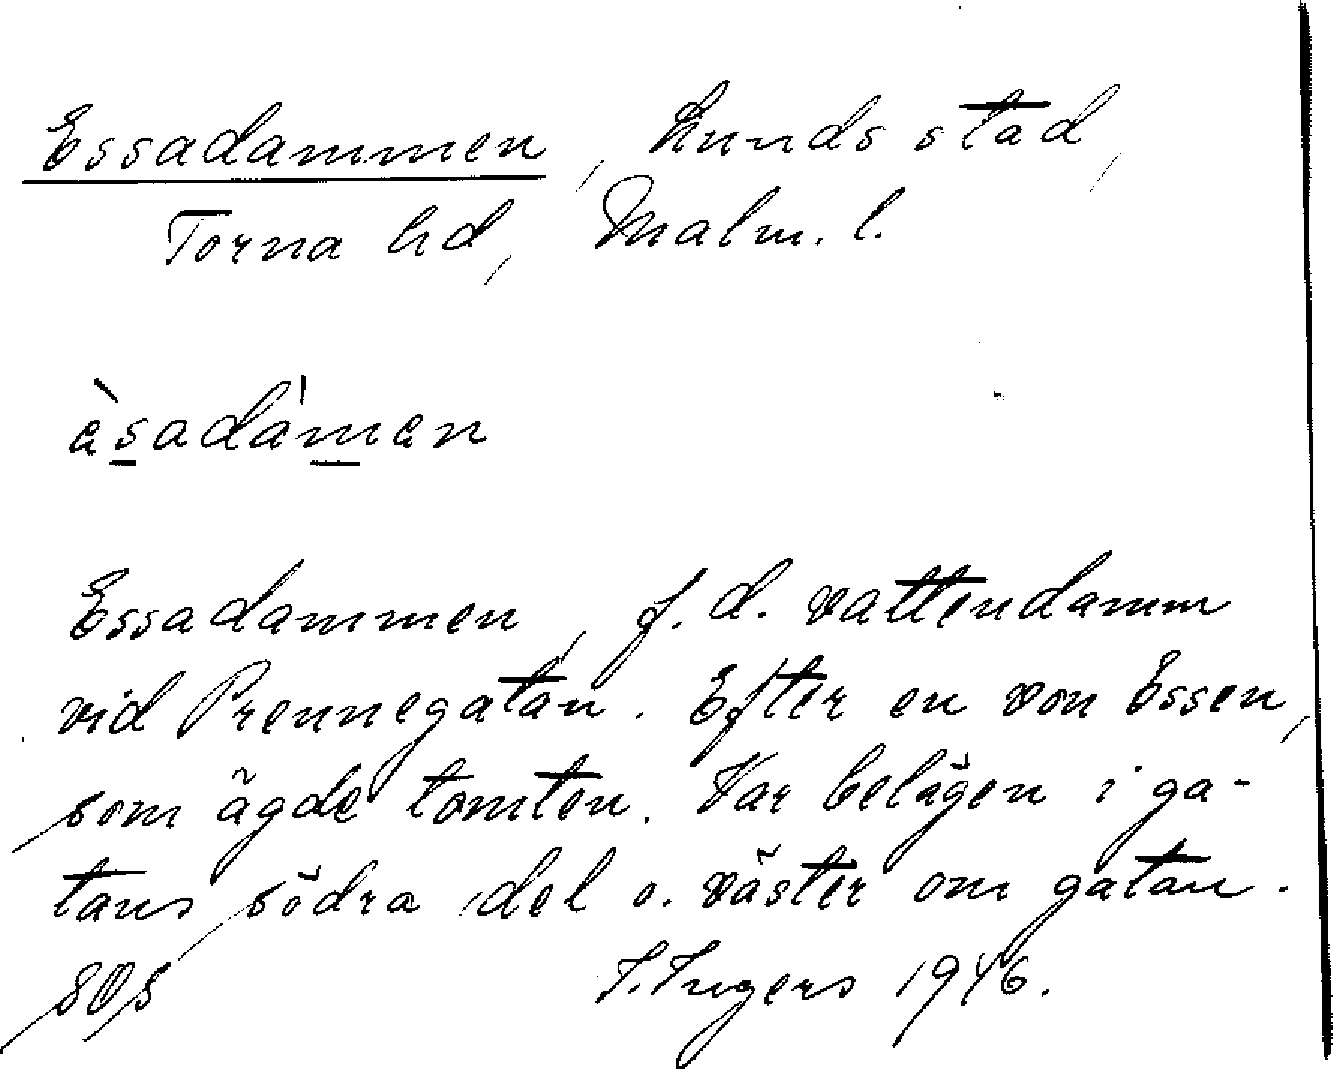 Essadammen, Lunds stad,
Torna hd, Malm. l.
èsadámen
Essadammen, f. d. vattendamm
vid Prennegatan. Efter en von Essen,
som ägde tomten. Var belägen i ga-
tans södra del o. väster om gatan.
SOS I. Ingers 1946.